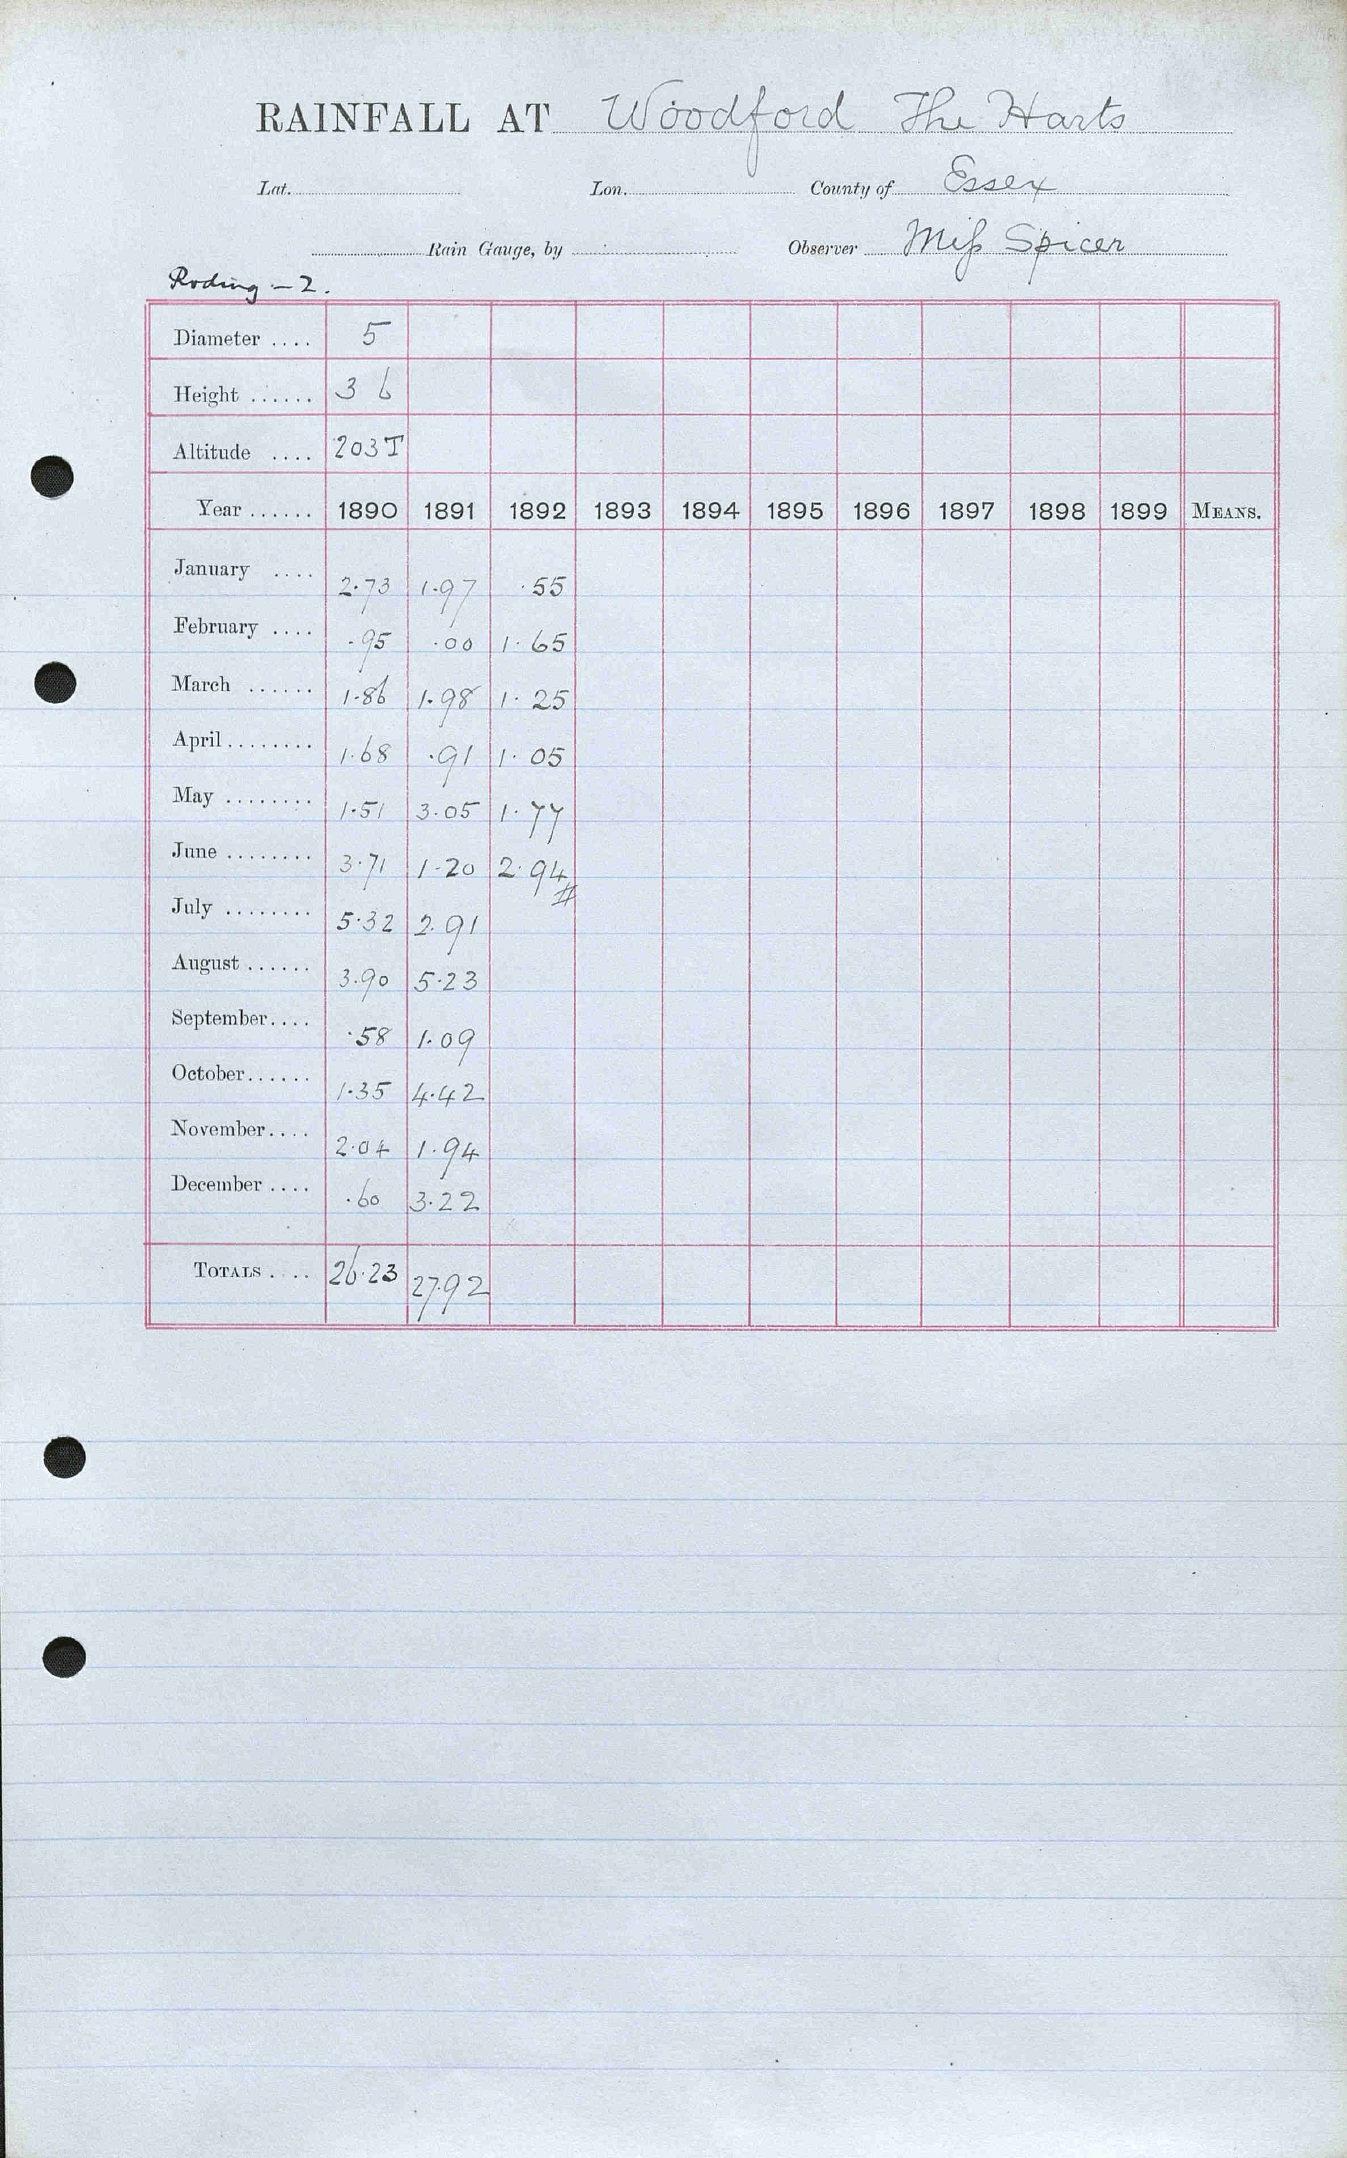 RAINFALL AT Woodford The Harts
Lat. Lon. County of Essex
Rain Gauge, by Observer Miss Spicer
Roding - 2.
Diameter .... 5
Height ...... 3 6
Altitude .... 203 T
Year ...... 1890 1891 1892 1893 1894 1895 1896 1897 1898 1899 MEANS.
January .... 2.73 1.97 .55
February .... .95 .00 1.65
March ...... 1.86 1.98 1.25
April ........ 1.68 .91 1.05
May ........ 1.51 3.05 1.77
June ........ 3.71 1.20 2.94 #
July ........ 5.32 2.91
August ...... 3.90 5.23
September.... .58 1.09
October...... 1.35 4.42
November.... 2.04 1.94
December .... .60 3.22
TOTALS .... 26.23 27.92